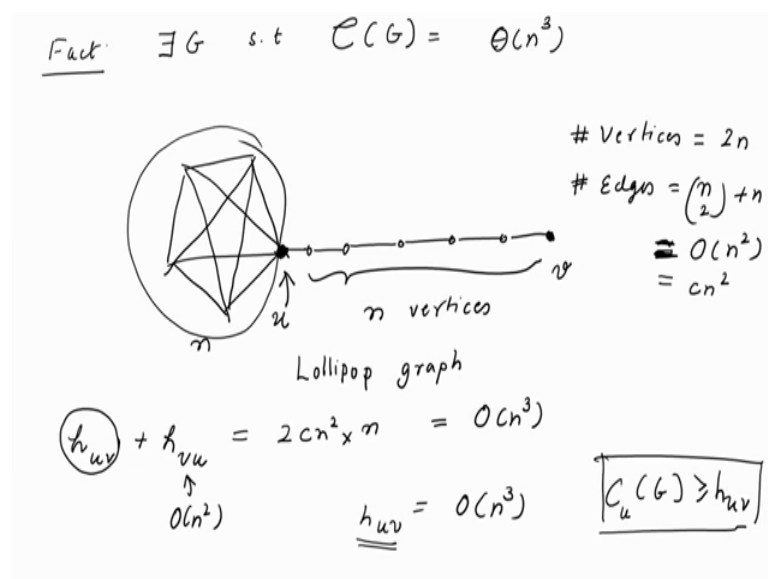 Fact: ∃ G s.t C(G) = Θ(n³)
# Vertices = 2n
# Edges = (n 2) + n
= O(n²)
= cn²
u
v
n vertices
n
Lollipop graph
h_uv + h_vu = 2cn² × n = O(n³)
↑
O(n²)
h_uv = O(n³)
C_u(G) ≥ h_uv